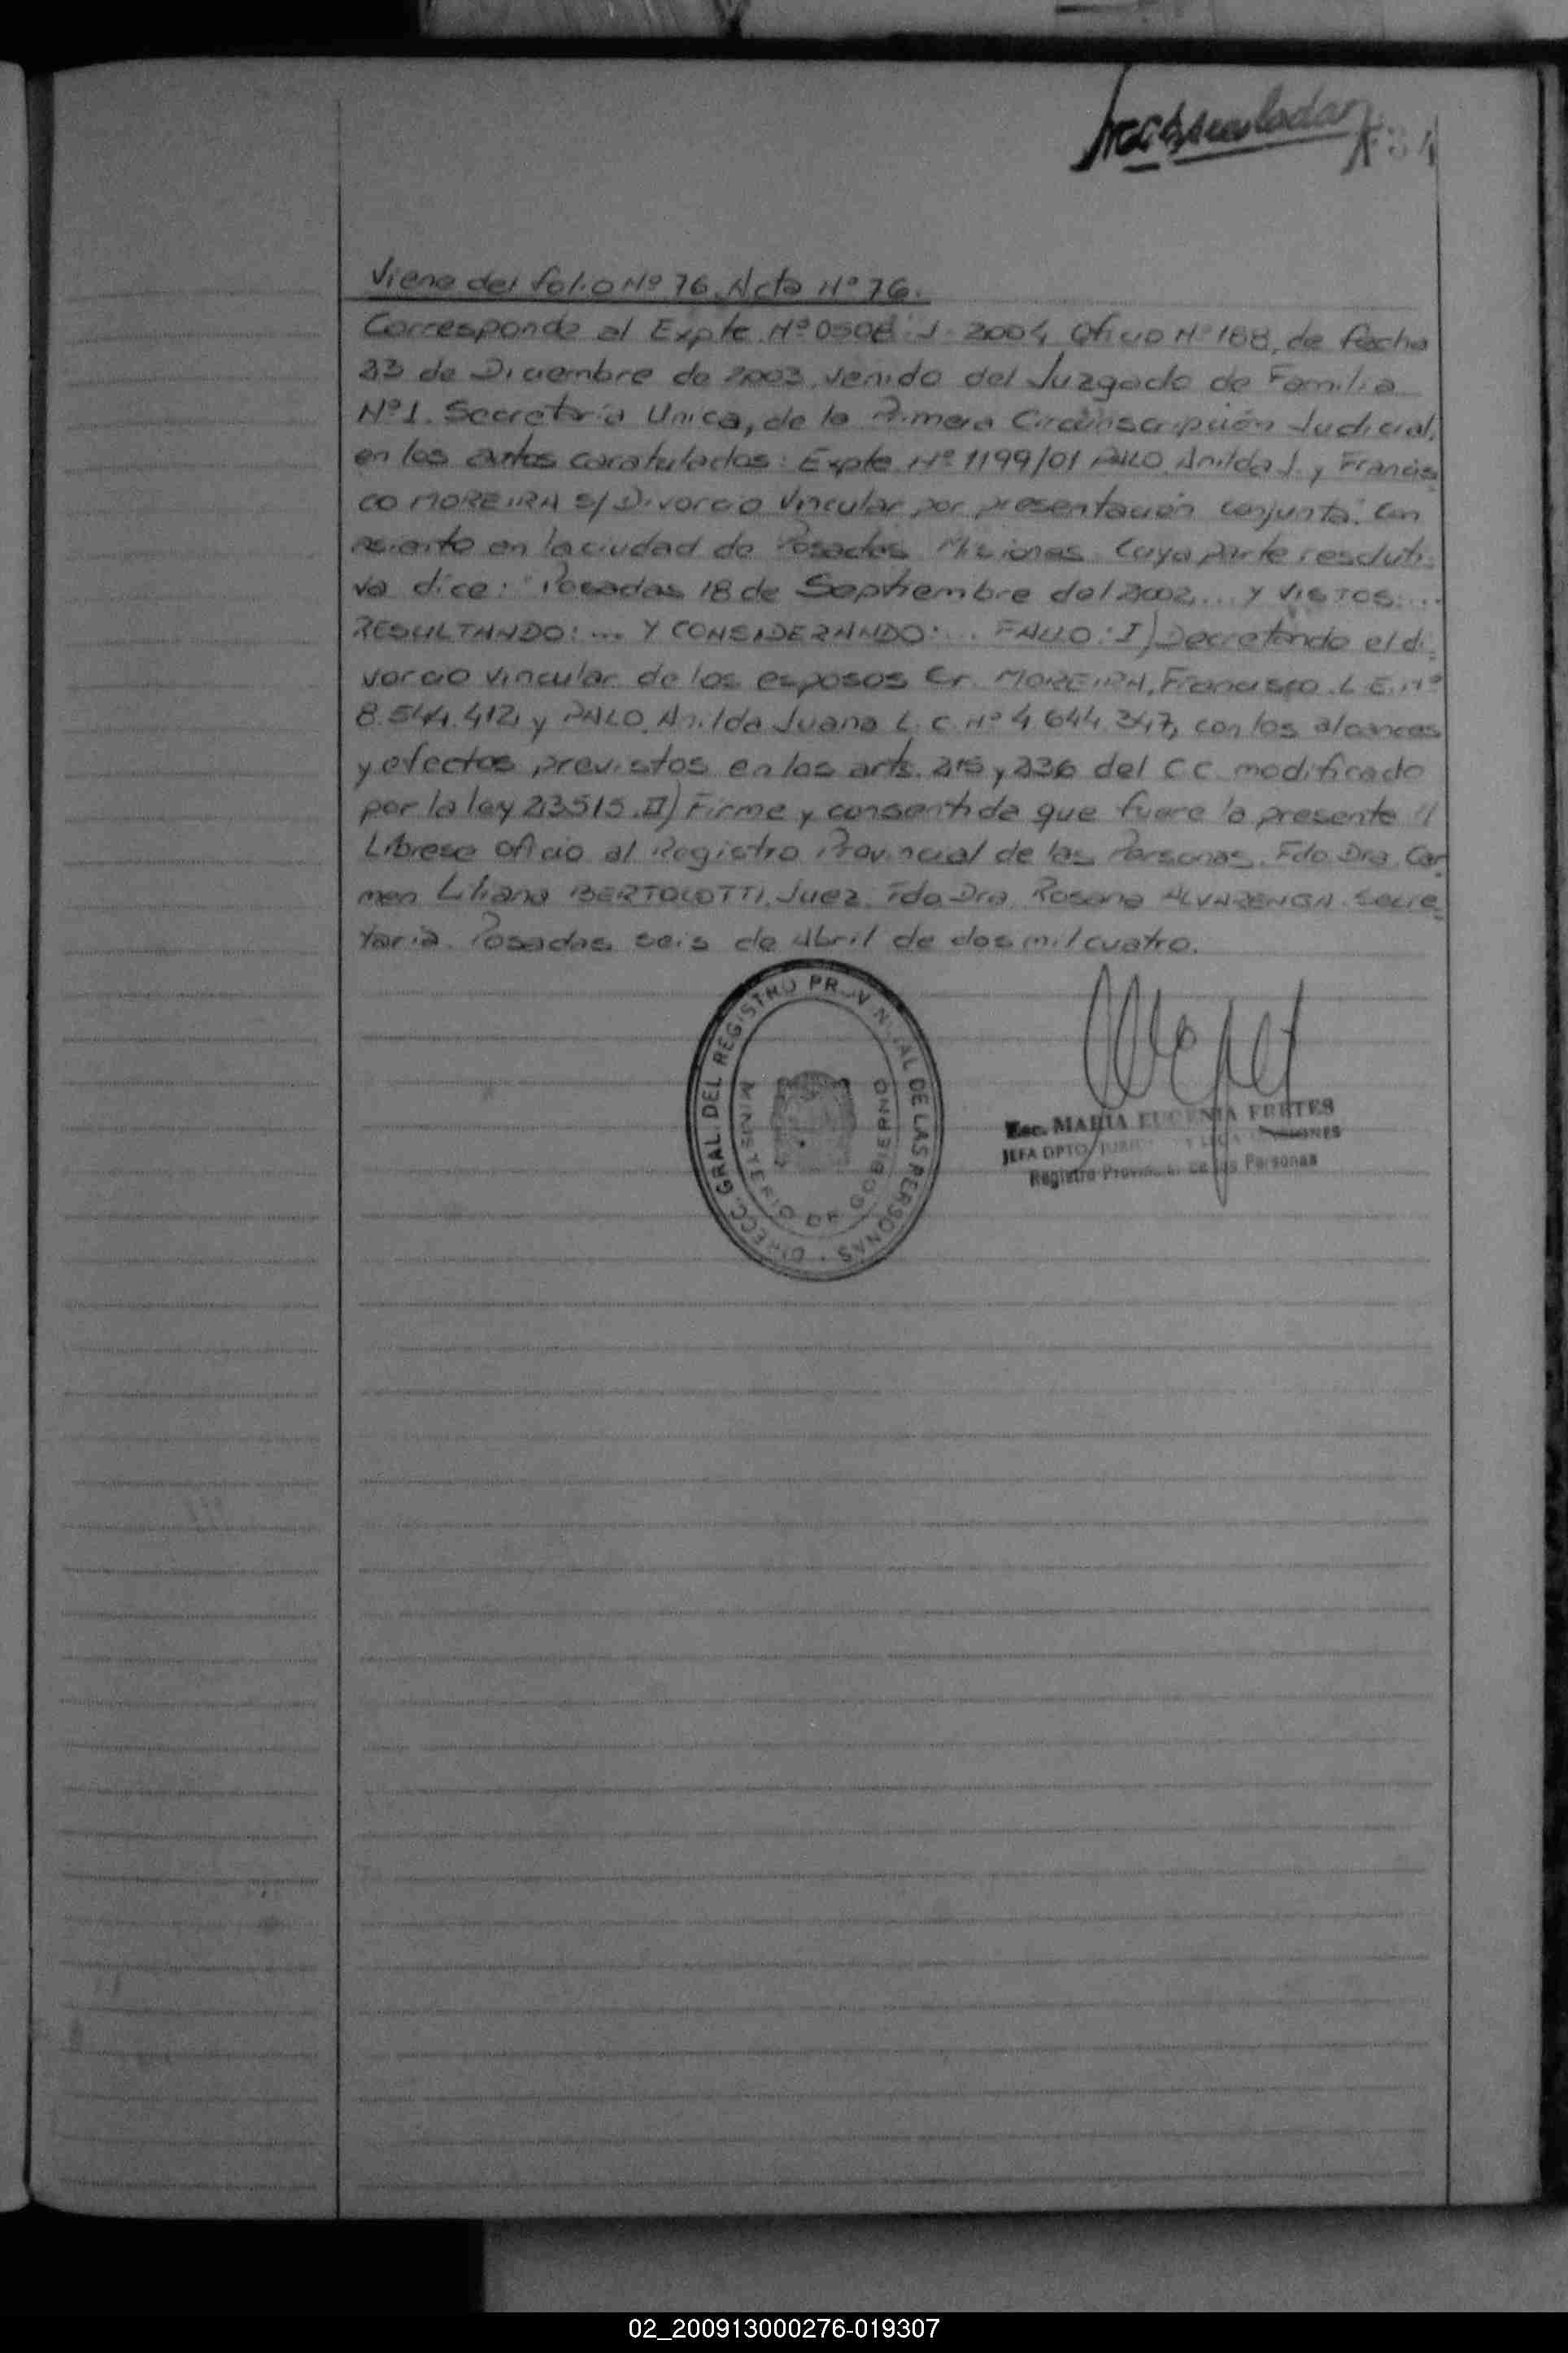 Viene del folio Nº 76. Acta Nº 76.
Corresponde al Expte. Nº 0508-J-2004 Oficio Nº 188, de fecha
23 de Diciembre de 2003 venido del Juzgado de Familia
Nº1. Secretaría Unica, de la Primera Circunscripción Judicial,
en los autos caratulados: Expte Nº 1199/01 PALO, Anilda J. y Francis
co MOREIRA S/ Divorcio Vincular por presentación conjunta". Con
asiento en la ciudad de Posadas Misiones. Cuya parte resoluti-
va dice: "Posadas 18 de Septiembre del 2002... Y VISTOS:...
RESULTANDO: ... Y CONSIDERANDO: ... FALLO: I) Decretando el di-
vorcio vincular de los esposos Sr. MOREIRA, Francisco. L.E. Nº
8.544.412, y PALO, Anilda Juana L.C. Nº 4.644.347, con los alcances
y efectos previstos en los arts. 215 y 236 del C C modificado
por la ley 23515. II) Firme y consentida que fuere la presente //
Librese Oficio al Registro Provincial de las Personas. Fdo. Dra. Car-
men Liliana BERTOLOTTI. Juez. Fdo Dra. Rosana ALVARENGA. Secre-
taria. Posadas seis de Abril de dos mil cuatro.
DIRECC. GRAL. DEL REGISTRO PROVINCIAL DE LAS PERSONAS
MINISTERIO DE GOBIERNO
Esc. MARIA EUGENIA FUETES
JEFA DPTO.
Registro Provincial de las Personas
02_200913000276-019307